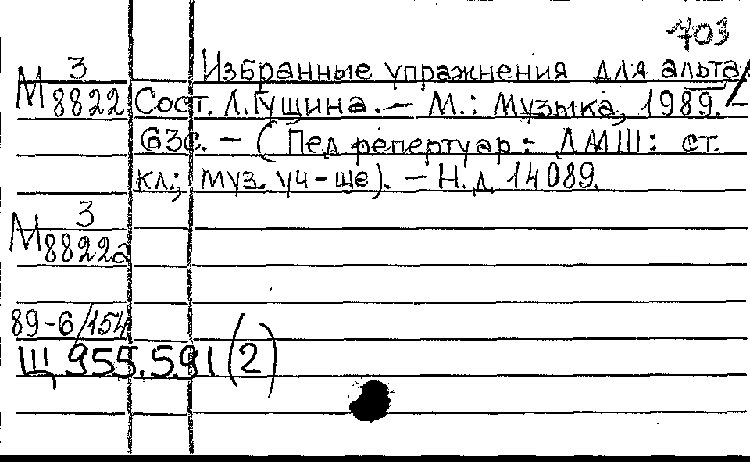 703
М 3/8822 Избранные упражнения для альта /
Сост. Л. Гущина. – М.: Музыка, 1989. –
63с. – (Пед. репертуар: ДМШ: ст.
кл.; муз. уч-ще). – Н.д. 14089.
М 3/8822а
89-6/154
Щ 955.591(2)